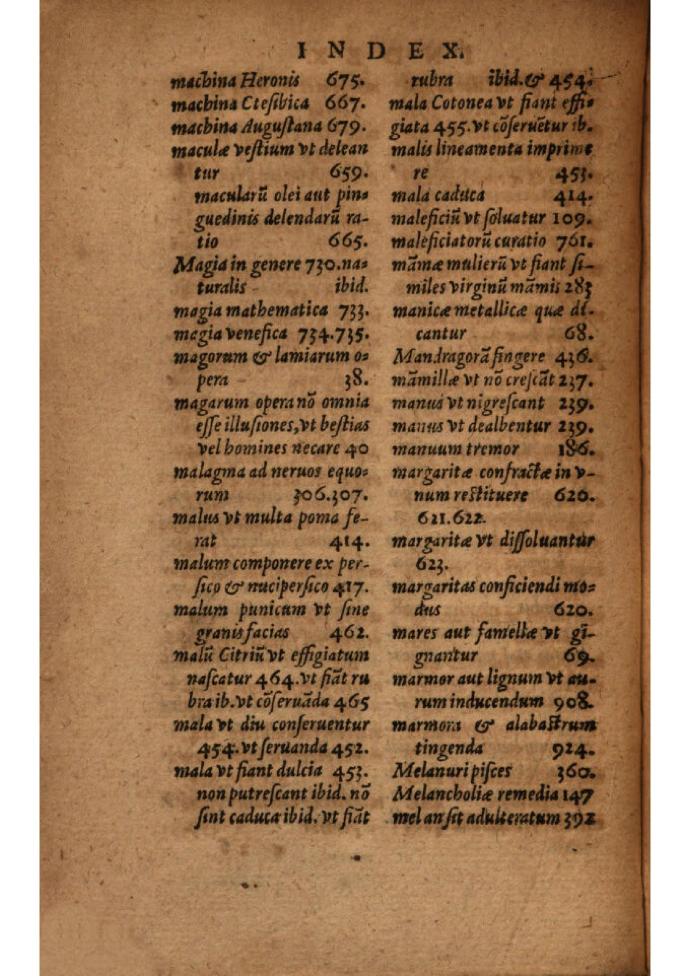 INDEX.
machina Heronis 675.
machina Ctesibica 667.
machina Augustana 679.
maculæ vestium vt delean
tur 659.
macularũ olei aut pin=
guedinis delendarũ ra-
tio 665.
Magia in genere 730. na=
turalis ibid.
magia mathematica 733.
magia venefica 734.735.
magorum & lamiarum o=
pera 38.
magarum opera nõ omnia
esse illusiones, vt bestias
vel homines necare 40
malagma ad neruos equo=
rum 306.307.
malus vt multa poma fe-
rat 414.
malum componere ex per-
sico & nucipersico 417.
malum punicum vt sine
granis facias 462.
malũ Citriũ vt effigiatum
nascatur 464. vt fiãt ru
bra ib. vt cõseruãda 465
mala vt diu conseruentur
454. vt seruanda 452.
mala vt fiant dulcia 453.
non putrescant ibid. nõ
sint caduca ibid. vt fiãt
rubra ibid. & 454.
mala Cotonea vt fiant effi=
giata 455. vt cõseruẽtur ib.
malis lineamenta imprime
re 453.
mala caduca 414.
maleficiũ vt soluatur 109.
maleficiatorũ curatio 761.
mãmæ mulierũ vt fiant si-
miles virginũ mãmis 283
manicæ metallicæ quæ di-
cantur 68.
Mandragorã fingere 436.
mãmillæ vt nõ crescãt 237.
manus vt nigrescant 239.
manus vt dealbentur 239.
manuum tremor 186.
margaritæ confractæ in v-
num restituere 620.
621.622.
margaritæ vt dissoluantur
623.
margaritas conficiendi mo=
dus 620.
mares aut famellæ vt gi-
gnantur 69.
marmor aut lignum vt au-
rum inducendum 908.
marmora & alabastrum
tingenda 924.
Melanuri pisces 360.
Melancholiæ remedia 147
mel an sit adulteratum 392